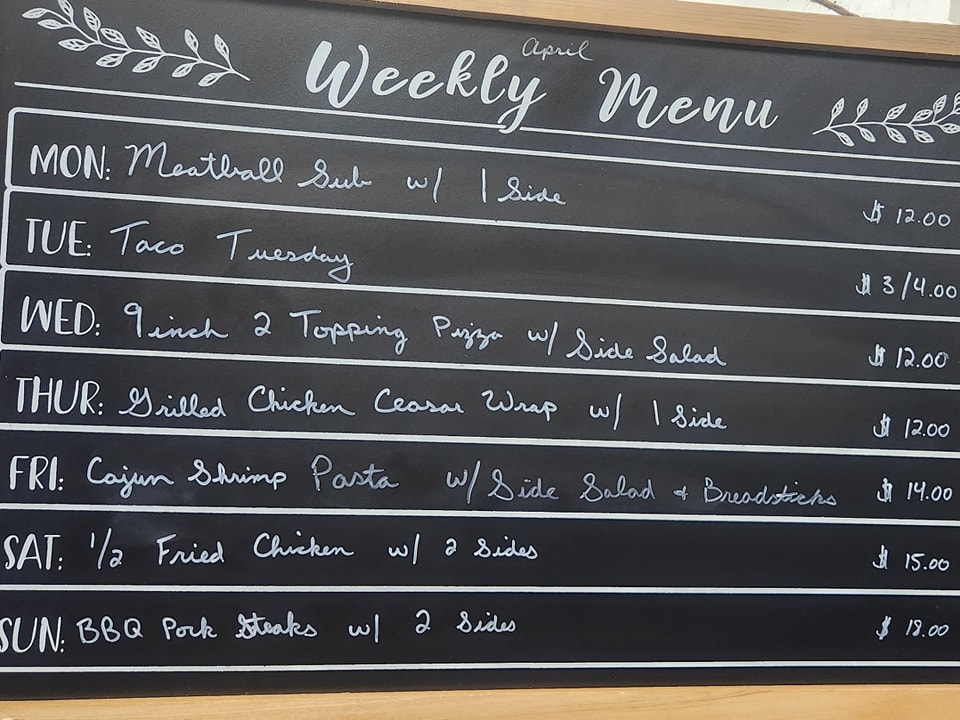 April
Weekly Menu
MON: Meatball Sub w/ 1 Side $ 12.00
TUE: Taco Tuesday $ 3/4.00
WED: 9inch 2 Topping Pizza w/ Side Salad $ 12.00
THUR: Grilled Chicken Ceasar Wrap w/ 1 Side $ 12.00
FRI: Cajun Shrimp Pasta w/ Side Salad & Breadsticks $ 14.00
SAT: 1/2 Fried Chicken w/ 2 Sides $ 15.00
SUN: BBQ Pork Steaks w/ 2 Sides $ 18.00